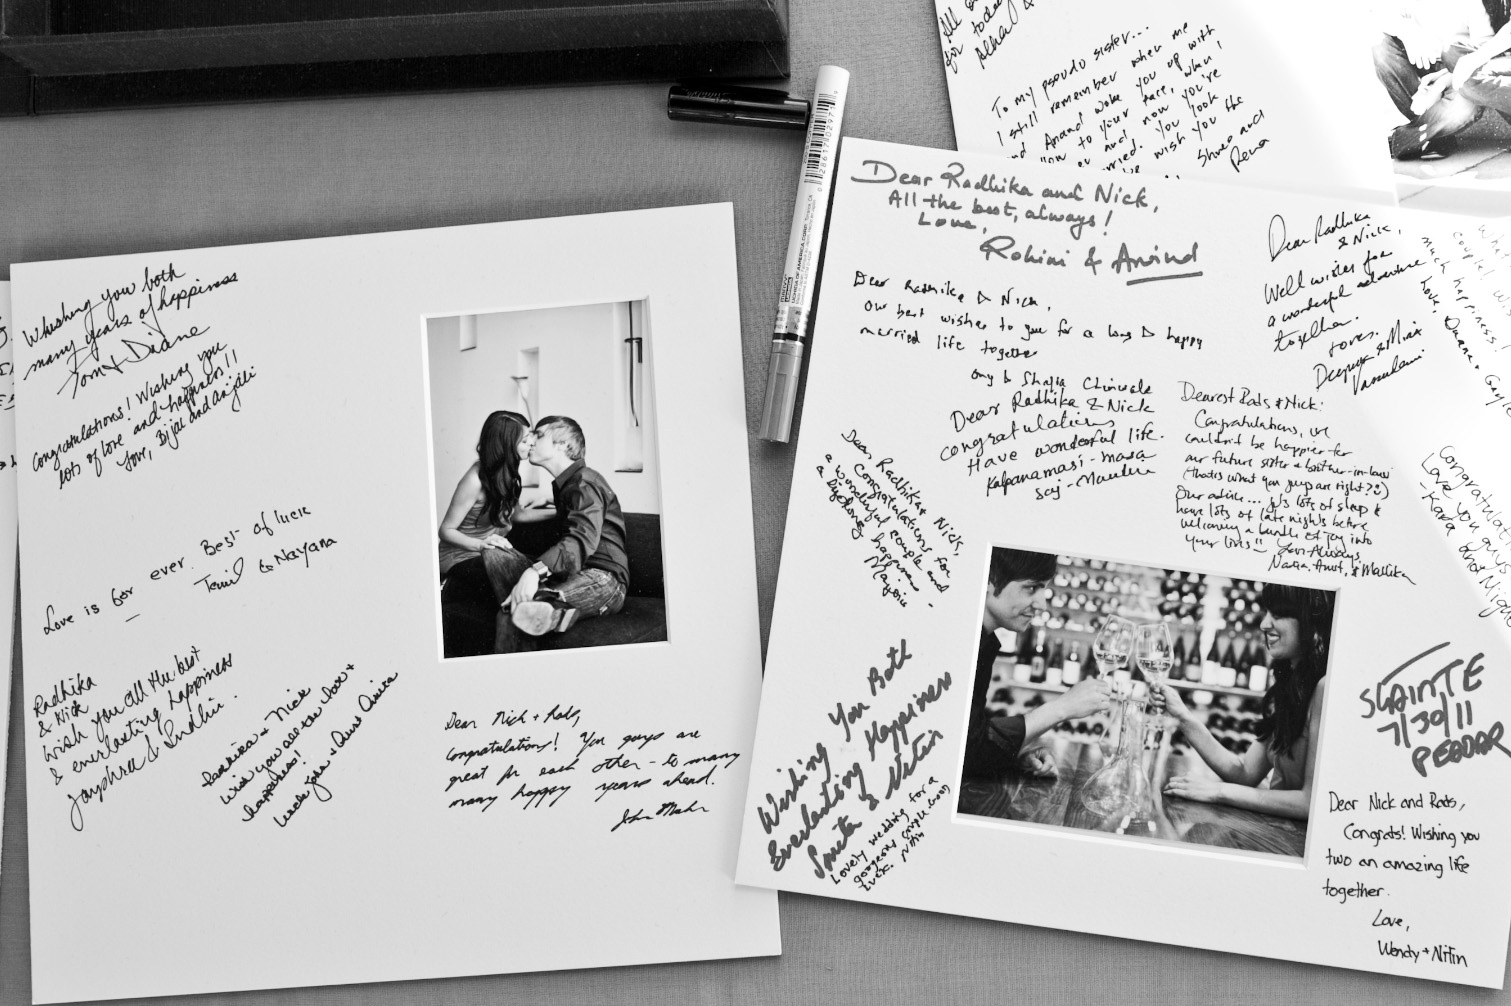 Whishing you both
many years of happiness
Tom & Diane
Congratulations! Wishing you
lots of love and happiness!!
Love, Bijal and Anjali
Love is for ever. Best of luck
& Nayana
Radhika
& Nick
Wish you all the best
& everlasting happiness
Jayshree & Sudhir.
Radhika + Nick
Wish you all the love +
happiness!
Uncle John + Aunt Anita
Dear Nick + Rads,
Congratulations! You guys are
great for each other - to many
many happy years ahead.
John
for today
To my pseudo sister...
I still remember when me
and Anand woke you up with
to your face, when I
and now you're
married. You look
we wish you the
Shree and
Rena
Dear Radhika and Nick,
All the best, always!
Love,
Rohini & Arvind
Dear Radhika & Nick,
Our best wishes to you for a long & happy
married life together
Dear Radhika & Nick
congratulations
Have wonderful life.
Kalpanamasi - masa
Dear Radhika & Nick,
Congratulations for
a wonderful couple and
a lifelong happiness -
Wishing You Both
Everlasting Happiness
Smita & Nitin
Lovely wedding for a
gorgeous couple. Good
Luck. Nitin
Dear Radhika
& Nick,
Well wishes for
a wonderful adventure
together.
Loves.
Dearest Rads & Nick:
Congratulations, we
couldn't be happier for
our future sister & brother-in-law
(that's what you guys are right?:))
Our advice... get lots of sleep &
have lots of late nights before
welcoming a bundle of joy into
your lives!!
Love Always
Nadia, Amit, & Mallika
What
couple! Wi
much happiness!
Love,
Congratulati
Love you guys
- Kara and Nique
SLAINTE
7/30/11
PEADAR
Dear Nick and Rads,
Congrats! Wishing you
two an amazing life
together.
Love,
Wendy + Nitin